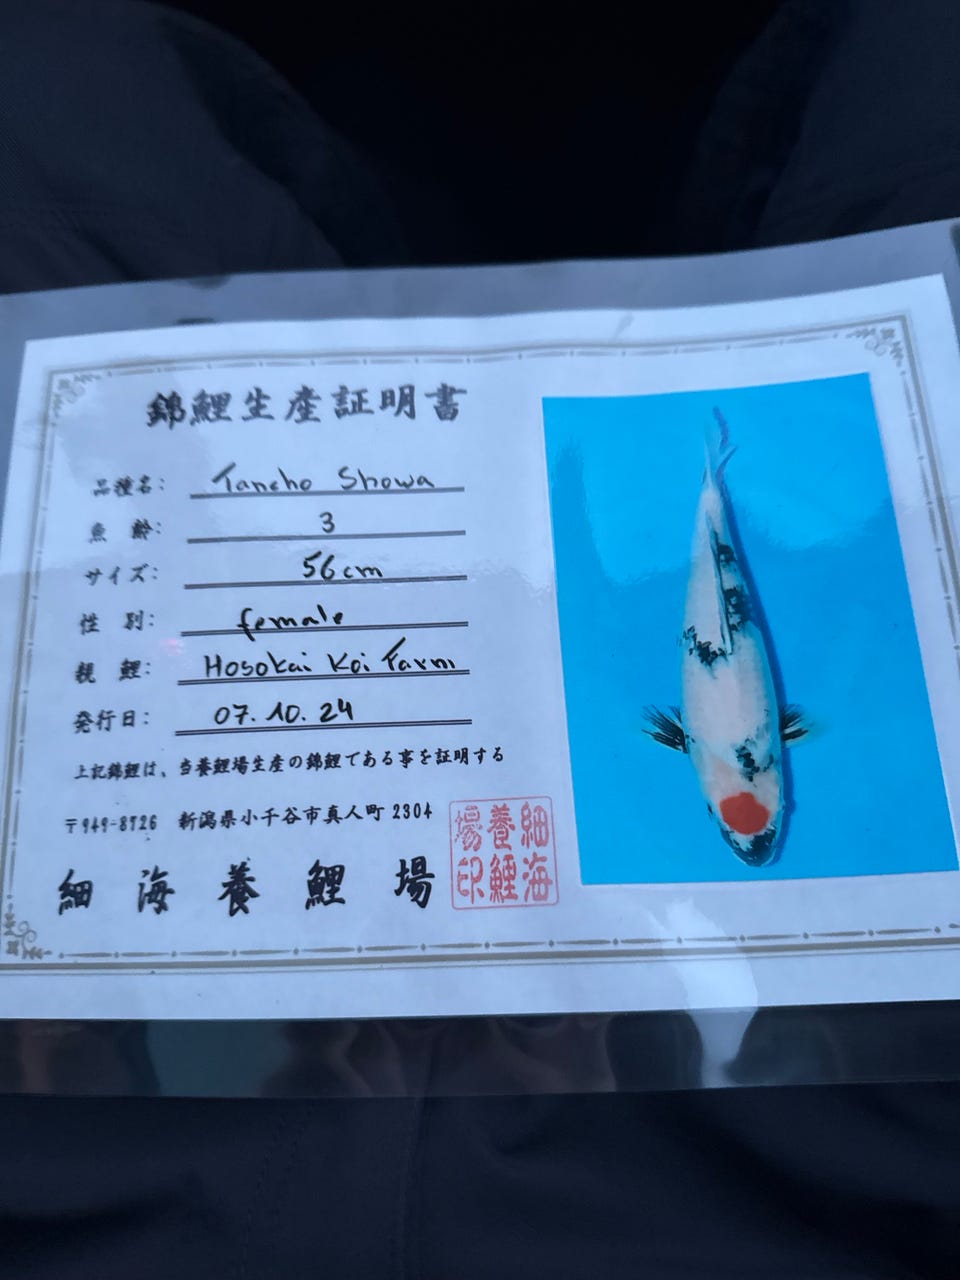 錦鯉生産証明書
品種名: Tancho Showa
魚齢: 3
サイズ: 56cm
性別: female
親鯉: Hosokai Koi Farm
発行日: 07.10.24
上記錦鯉は、当養鯉場生産の錦鯉である事を証明する
〒949-8726 新潟県小千谷市真人町 2304
細海養鯉場
細海
養鯉
場印